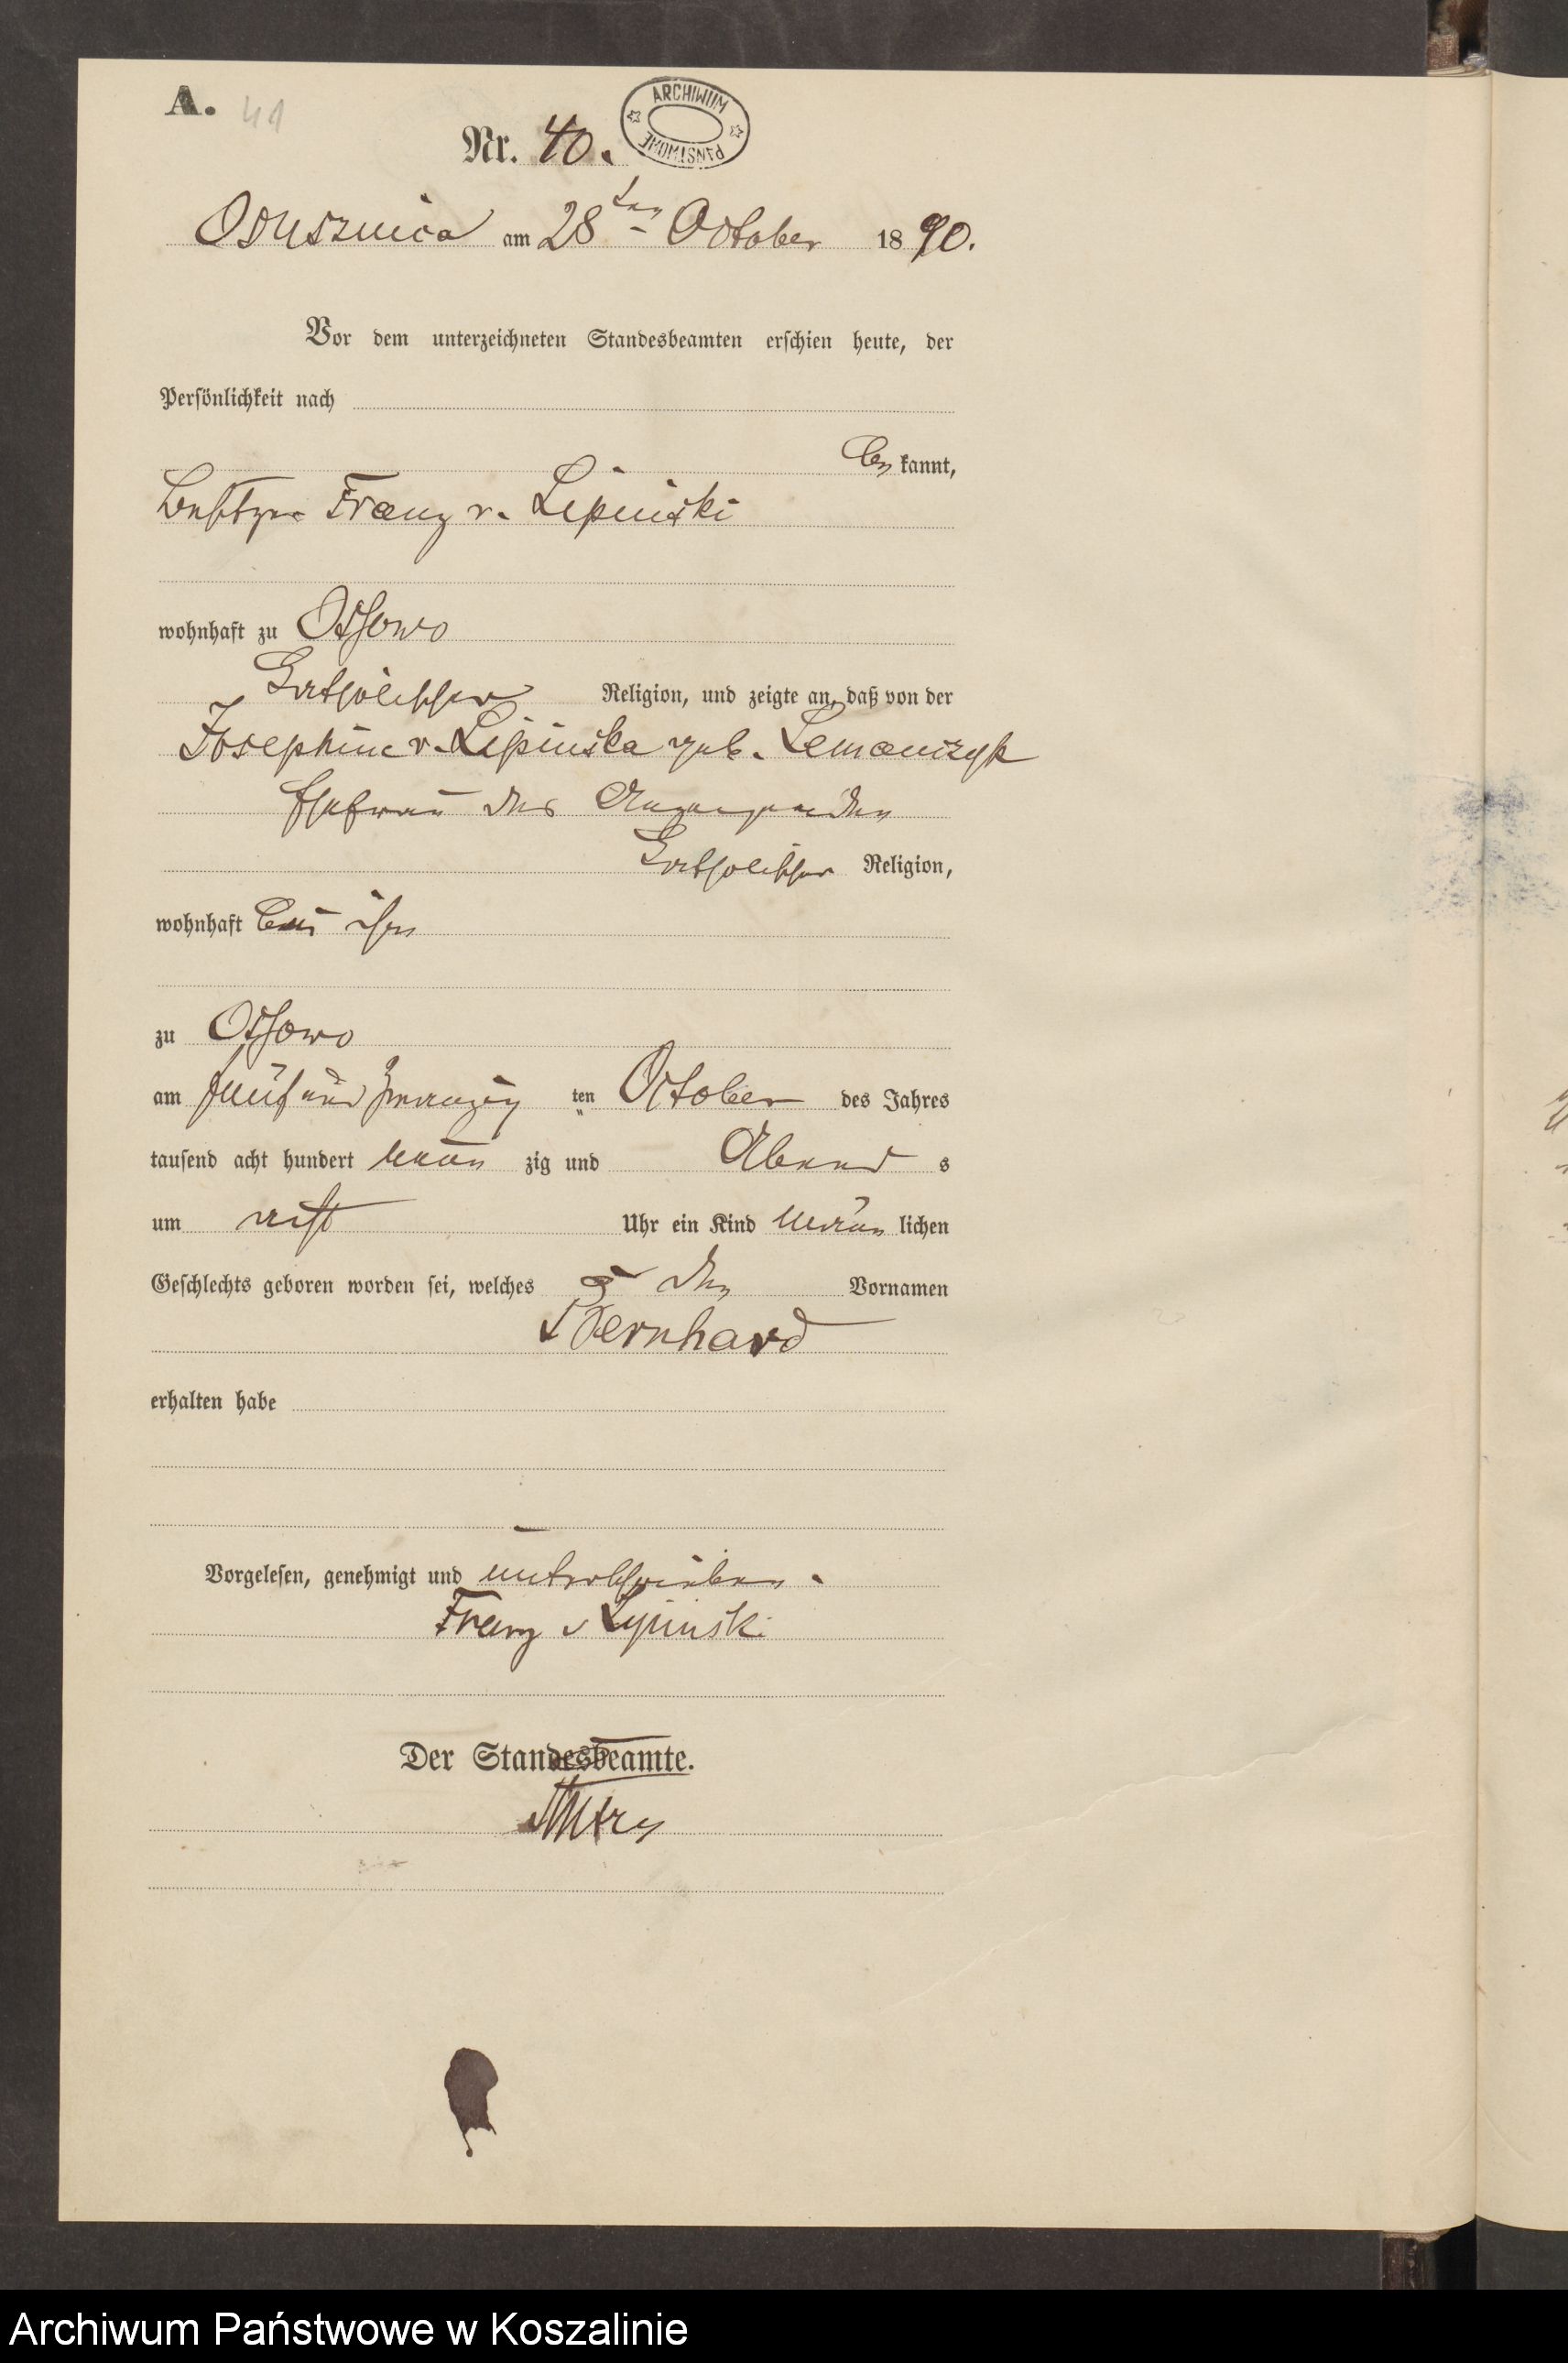 A. 41
Nr. 40.
ARCHIWUM PAŃSTWOWE
Osusznica am 28ten October 1890.
Vor dem unterzeichneten Standesbeamten erschien heute, der
Persönlichkeit nach
bekannt,
Besitzer Franz v. Lipinski
wohnhaft zu Ossowo
katholischer Religion, und zeigte an, daß von der
Josephine v. Lipinska geb. Lemanczyk
Ehefrau des Anzeigenden
katholischer Religion,
wohnhaft bei ihm
zu Ossowo
am fünf und zwanzig ten October des Jahres
tausend acht hundert neun zig und Abend s
um acht Uhr ein Kind männ lichen
Geschlechts geboren worden sei, welches den Vornamen
Bernhard
erhalten habe
Vorgelesen, genehmigt und unterschrieben.
Franz v Lipinski
Der Standesbeamte.
Archiwum Państwowe w Koszalinie